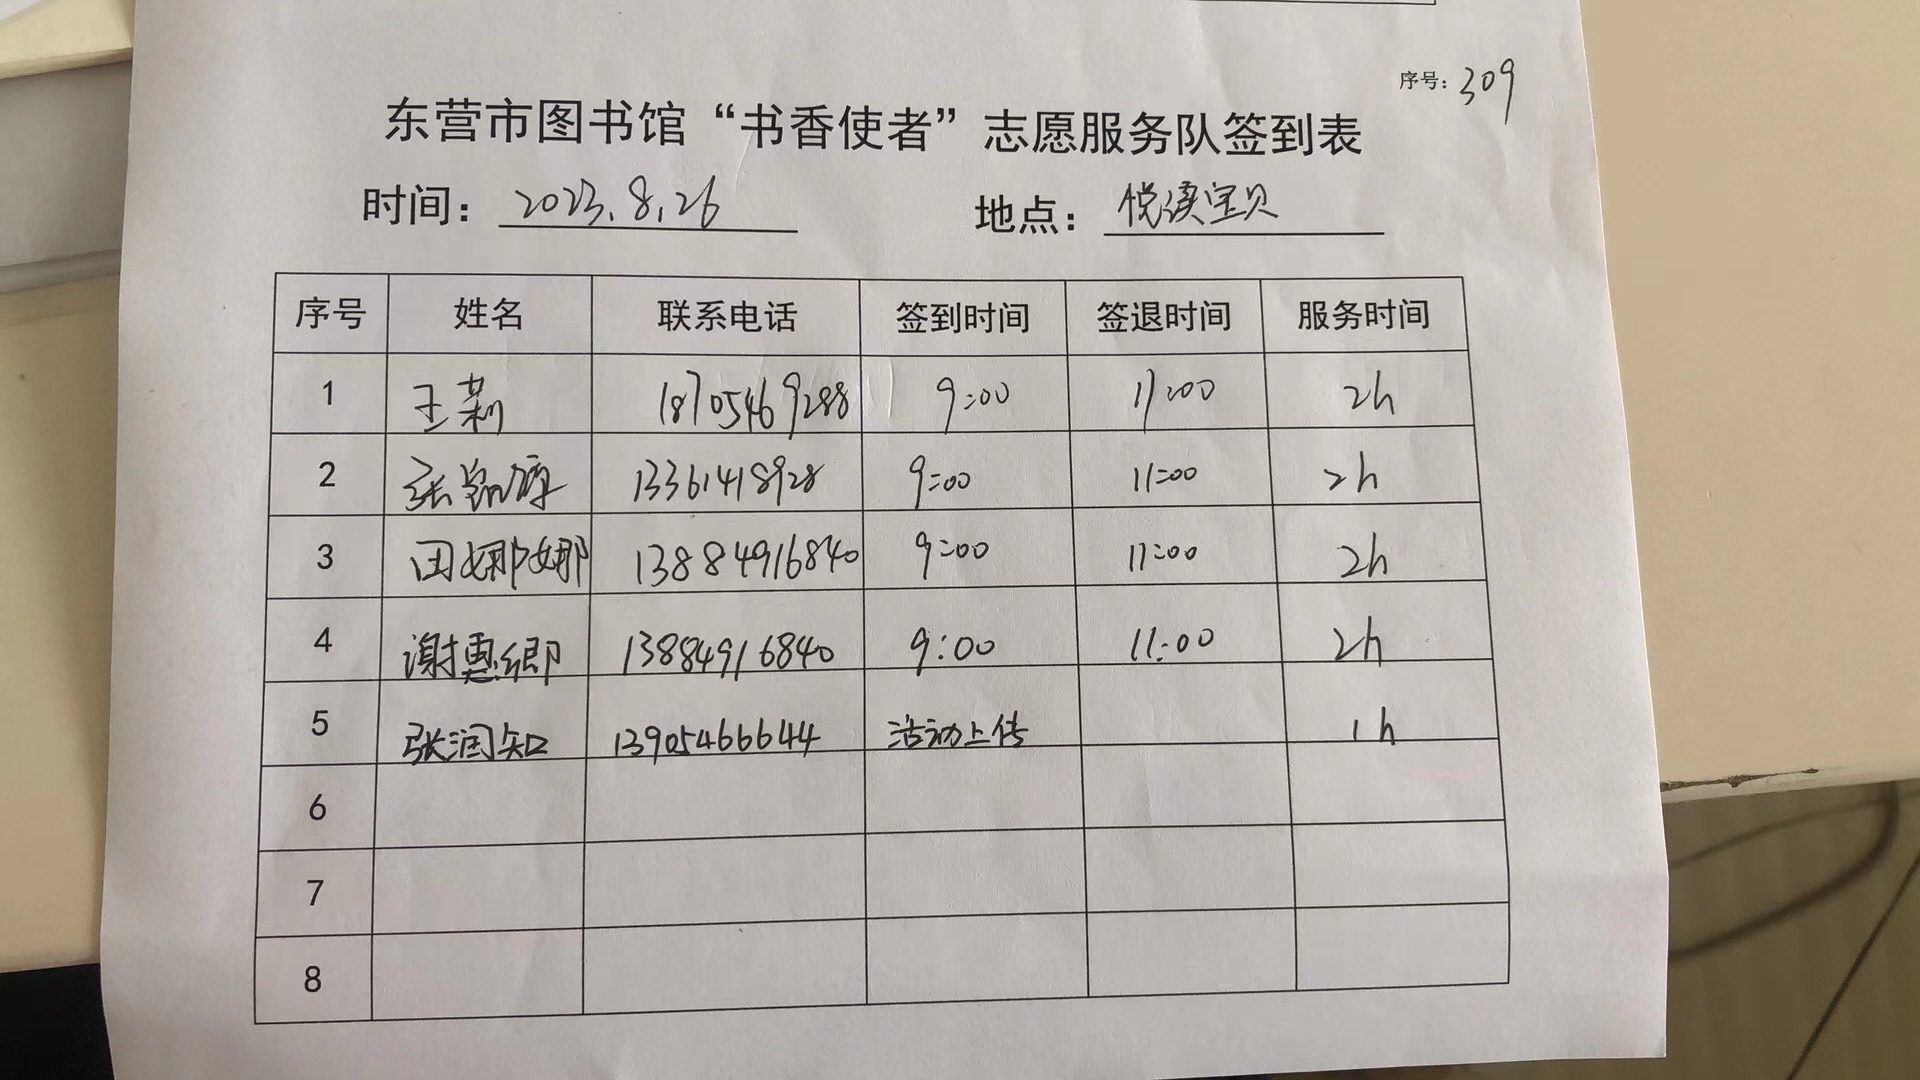 序号：309
东营市图书馆“书香使者”志愿服务队签到表
时间：2023.8.26 地点：悦读宝贝
序号 姓名 联系电话 签到时间 签退时间 服务时间
1 王莉 18705469288 9:00 11:00 2h
2 张 13361418928 9:00 11:00 2h
3 田娜娜 13884916840 9:00 11:00 2h
4 谢惠卿 13884916840 9:00 11:00 2h
5 张润知 13905466644 活动上传 1h
6
7
8